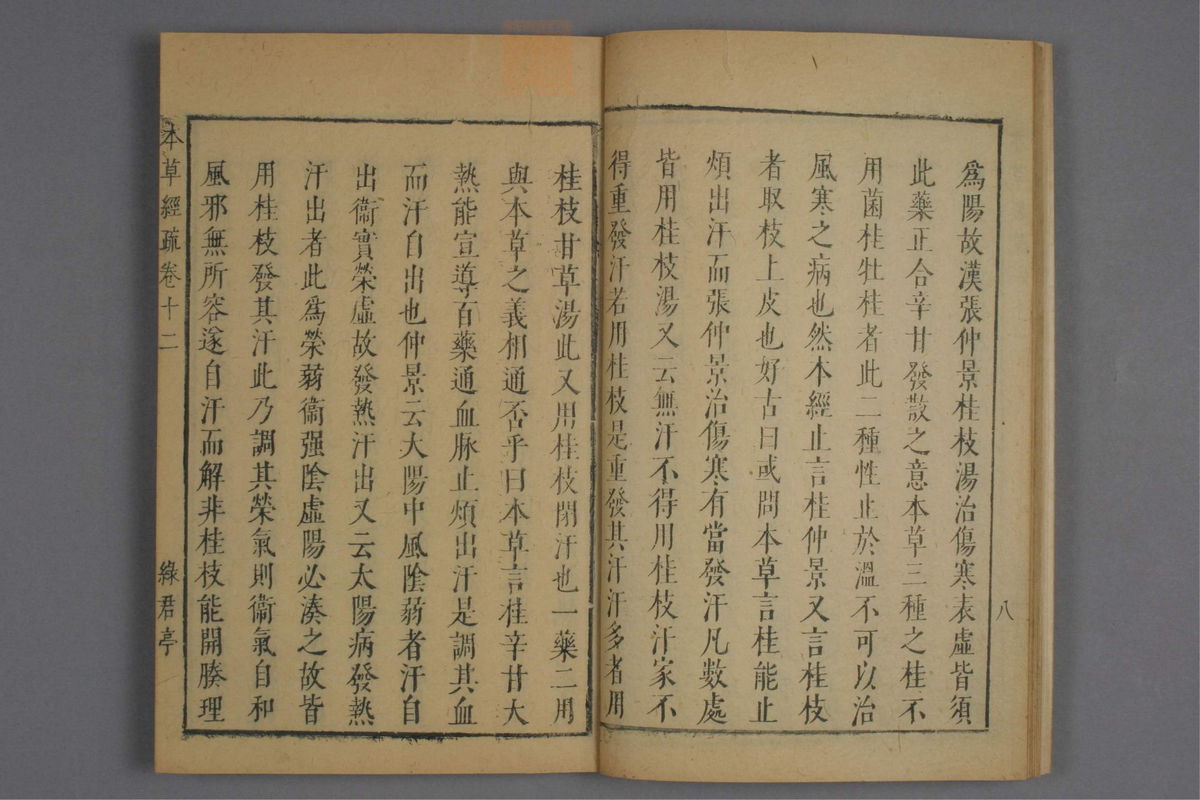 爲陽故漢張仲景桂枝湯治傷寒表虛皆須
此藥正合辛甘發散之意本草三種之桂不
用菌桂牡桂者此二種性止於溫不可以治
風寒之病也然本經止言桂仲景又言桂枝
者取枝上皮也好古曰或問本草言桂能止
煩出汗而張仲景治傷寒有當發汗凡數處
皆用桂枝湯又云無汗不得用桂枝汗家不
得重發汗若用桂枝是重發其汗汗多者用
八
桂枝甘草湯此又用桂枝閉汗也一藥二用
與本草之義相通否乎曰本草言桂辛甘大
熱能宣導百藥通血脉止煩出汗是調其血
而汗自出也仲景云大陽中風陰弱者汗自
出衞實榮虛故發熱汗出又云太陽病發熱
汗出者此爲榮弱衞强陰虛陽必湊之故皆
用桂枝發其汗此乃調其榮氣則衞氣自和
風邪無所容遂自汗而解非桂枝能開腠理
本草經疏卷十二
綠君亭